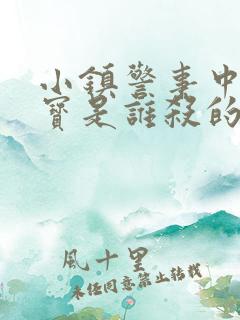 小鎮警事中
寶是誰殺的
風十里
未經同意禁止轉載